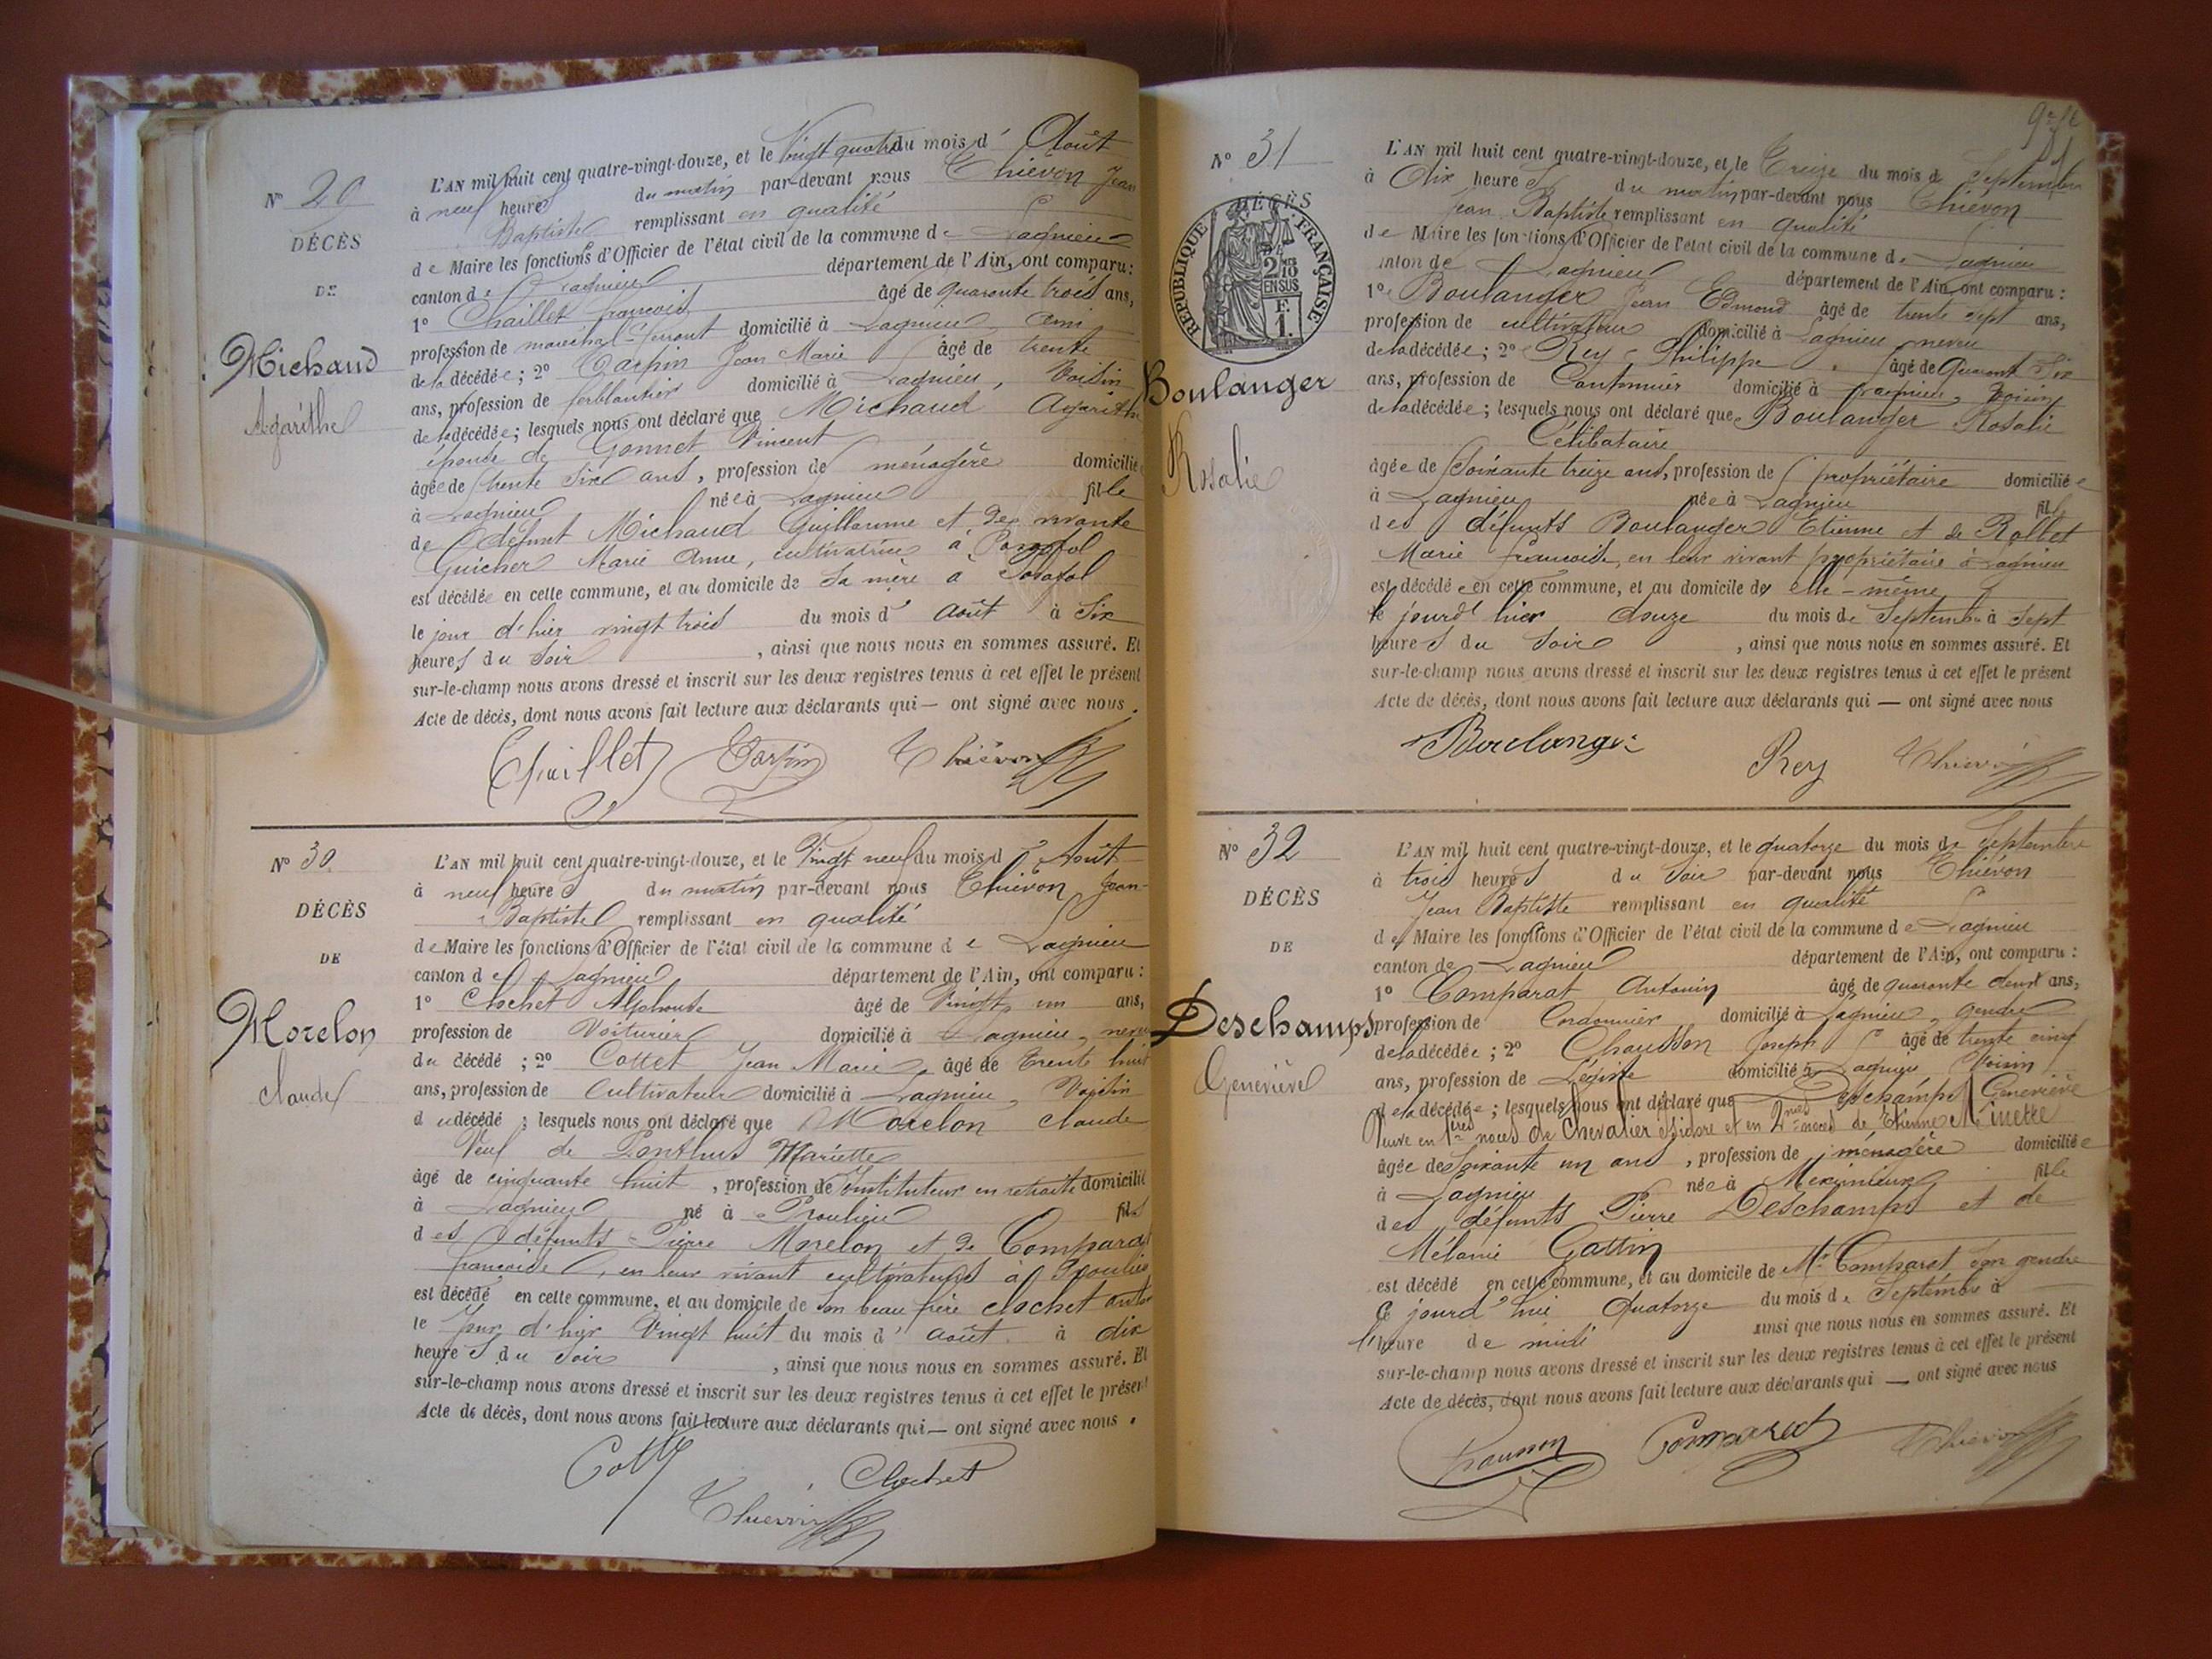 N° 29
DÉCÈS
DE
Michaud
Agarithe
L'AN mil huit cent quatre-vingt-douze, et le Vingt quatre du mois d' Août
à neuf heures du matin par-devant nous Thiévon Jean
Baptiste remplissant en qualité
de Maire les fonctions d'Officier de l'état civil de la commune de Lagnieu
canton de Lagnieu département de l'Ain, ont comparu :
1° Chaillet françois âgé de quarante trois ans,
profession de maréchal-ferrant domicilié à Lagnieu, ami
de la décédée ; 2° Carpin Jean Marie âgé de trente
ans, profession de ferblantier domicilié à Lagnieu, Voisin
de la décédée ; lesquels nous ont déclaré que Michaud Agarithe
épouse de Gonnet Vincent
âgée de trente six ans, profession de ménagère domiciliée
à Lagnieu née à Lagnieu fille
de défunt Michaud Guillaume et de vivante
Guicher Marie Anne, cultivatrice à Posafol
est décédée en cette commune, et au domicile de sa mère à Posafol
le jour d'hier vingt trois du mois d' août à six
heures du soir, ainsi que nous nous en sommes assuré. Et
sur-le-champ nous avons dressé et inscrit sur les deux registres tenus à cet effet le présent
Acte de décès, dont nous avons fait lecture aux déclarants qui — ont signé avec nous.
Chaillet Carpin Thiévon
N° 30
DÉCÈS
DE
Morelon
Claude
L'AN mil huit cent quatre-vingt-douze, et le Vingt neuf du mois d' Août
à neuf heures du matin par-devant nous Thiévon Jean-
Baptiste remplissant en qualité
de Maire les fonctions d'Officier de l'état civil de la commune de Lagnieu
canton de Lagnieu département de l'Ain, ont comparu :
1° Clochet Alphonse âgé de Vingt un ans,
profession de Voiturier domicilié à Lagnieu, neveu
du décédé ; 2° Cottet Jean Marie âgé de trente huit
ans, profession de Cultivateur domicilié à Lagnieu, Voisin
du décédé ; lesquels nous ont déclaré que Morelon Claude
Veuf de Ponthus Mariette
âgé de cinquante huit, profession de Instituteur en retraite domicilié
à Lagnieu né à Proulieu fils
des défunts Pierre Morelon et de Comparat
françoise, en leur vivant cultivateurs à Proulieu
est décédé en cette commune, et au domicile de son beau frère Clochet
le jour d'hier Vingt huit du mois d' août à dix
heures du soir, ainsi que nous nous en sommes assuré. Et
sur-le-champ nous avons dressé et inscrit sur les deux registres tenus à cet effet le présent
Acte de décès, dont nous avons fait lecture aux déclarants qui — ont signé avec nous.
Clochet
Thiévon
N° 31
DÉCÈS
RÉPUBLIQUE FRANÇAISE
2/10 EN SUS
F. 1.
Boulanger
Rosalie
L'AN mil huit cent quatre-vingt-douze, et le Treize du mois de Septembre
à Dix heures du matin par-devant nous Thiévon
Jean Baptiste remplissant en qualité
de Maire les fonctions d'Officier de l'état civil de la commune de Lagnieu
canton de Lagnieu département de l'Ain, ont comparu :
1° Boulanger Jean Edmond âgé de trente sept ans,
profession de cultivateur domicilié à Lagnieu neveu
de la décédée ; 2° Rey Philippe âgé de Quarante Six
ans, profession de Cantonnier domicilié à Lagnieu, Voisin
de la décédée ; lesquels nous ont déclaré que Boulanger Rosalie
Célibataire
âgée de Soixante treize ans, profession de propriétaire domiciliée
à Lagnieu née à Lagnieu fille
des défunts Boulanger Etienne et de Rollet
Marie françoise, en leur vivant propriétaire à Lagnieu
est décédée en cette commune, et au domicile de elle-même
le jourd'hier douze du mois de Septembre à sept
heures du soir, ainsi que nous nous en sommes assuré. Et
sur-le-champ nous avons dressé et inscrit sur les deux registres tenus à cet effet le présent
Acte de décès, dont nous avons fait lecture aux déclarants qui — ont signé avec nous
Boulanger Rey Thiévon
N° 32
DÉCÈS
DE
Deschamps
Geneviève
L'AN mil huit cent quatre-vingt-douze, et le quatorze du mois de Septembre
à trois heures du soir par-devant nous Thiévon
Jean Baptiste remplissant en qualité
de Maire les fonctions d'Officier de l'état civil de la commune de Lagnieu
canton de Lagnieu département de l'Ain, ont comparu :
1° Comparat Antonin âgé de quarante deux ans,
profession de Cordonnier domicilié à Lagnieu, gendre
de la décédée ; 2° Chausson Joseph âgé de trente cinq
ans, profession de Légiste domicilié à Lagnieu Voisin
de la décédée ; lesquels nous ont déclaré que Deschamps Geneviève
Veuve en 1ères noces de Chevalier Isidore et en 2mes noces de Etienne Minette
âgée de Soixante un ans, profession de ménagère domiciliée
à Lagnieu née à Meximieux fille
des défunts Pierre Deschamps et de
Mélanie Gattin
est décédé en cette commune, et au domicile de Mr Comparat son gendre
Ce jourd'hui Quatorze du mois de Septembre à
l'heure de midi ainsi que nous nous en sommes assuré. Et
sur-le-champ nous avons dressé et inscrit sur les deux registres tenus à cet effet le présent
Acte de décès, dont nous avons fait lecture aux déclarants qui — ont signé avec nous
Chausson Comparat Thiévon